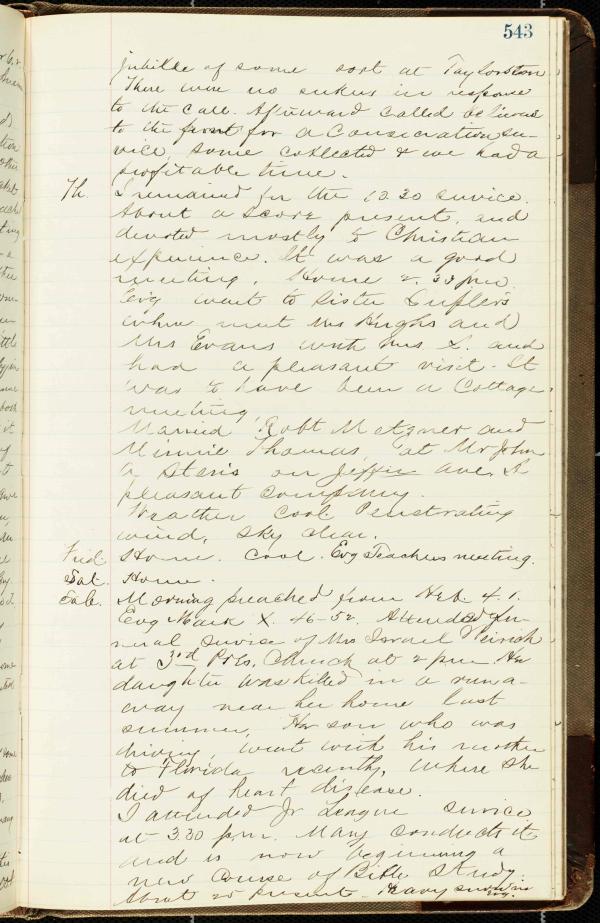 543
jubilee of some sort at Taylorstown
There were no seekers in response
to the call. Afterward called believers
to the front for a Consecration ser-
vice, some collected & we had a
profitable time.
Th. I remained for the 10.30 service.
About a score present, and
devoted mostly to Christian
experience. It was a good
meeting. Home 2.30 pm
Evg went to Sister
where met Mrs Hughs and
Mrs Evans with Mrs L. and
had a pleasant visit. It
was to have been a Cottage
meeting.
Married Robt Metzner and
Minnie Thomas, at Mr John
on Jeffn Ave. A
pleasant company.
Weather Cool. Penetrating
wind, sky clear.
Frid. Home. Cool. Evg Teachers meeting.
Sat. Home.
Sab. Morning preached from Heb. 4.1.
Evg Mark X. 46-52. Attended fu-
neral service of Mrs Israel
at 3rd Pres. Church at 2 pm. Her
daughter was killed in a runa-
way near her home last
summer. Her son who was
driving, went with his mother
to Florida recently, where she
died of heart disease.
I attended Jr League service
at 3.30 p.m. Mary conducts it
and is now beginning a
new course of Bible Study.
About 25 present. Heavy snow in
Evg.